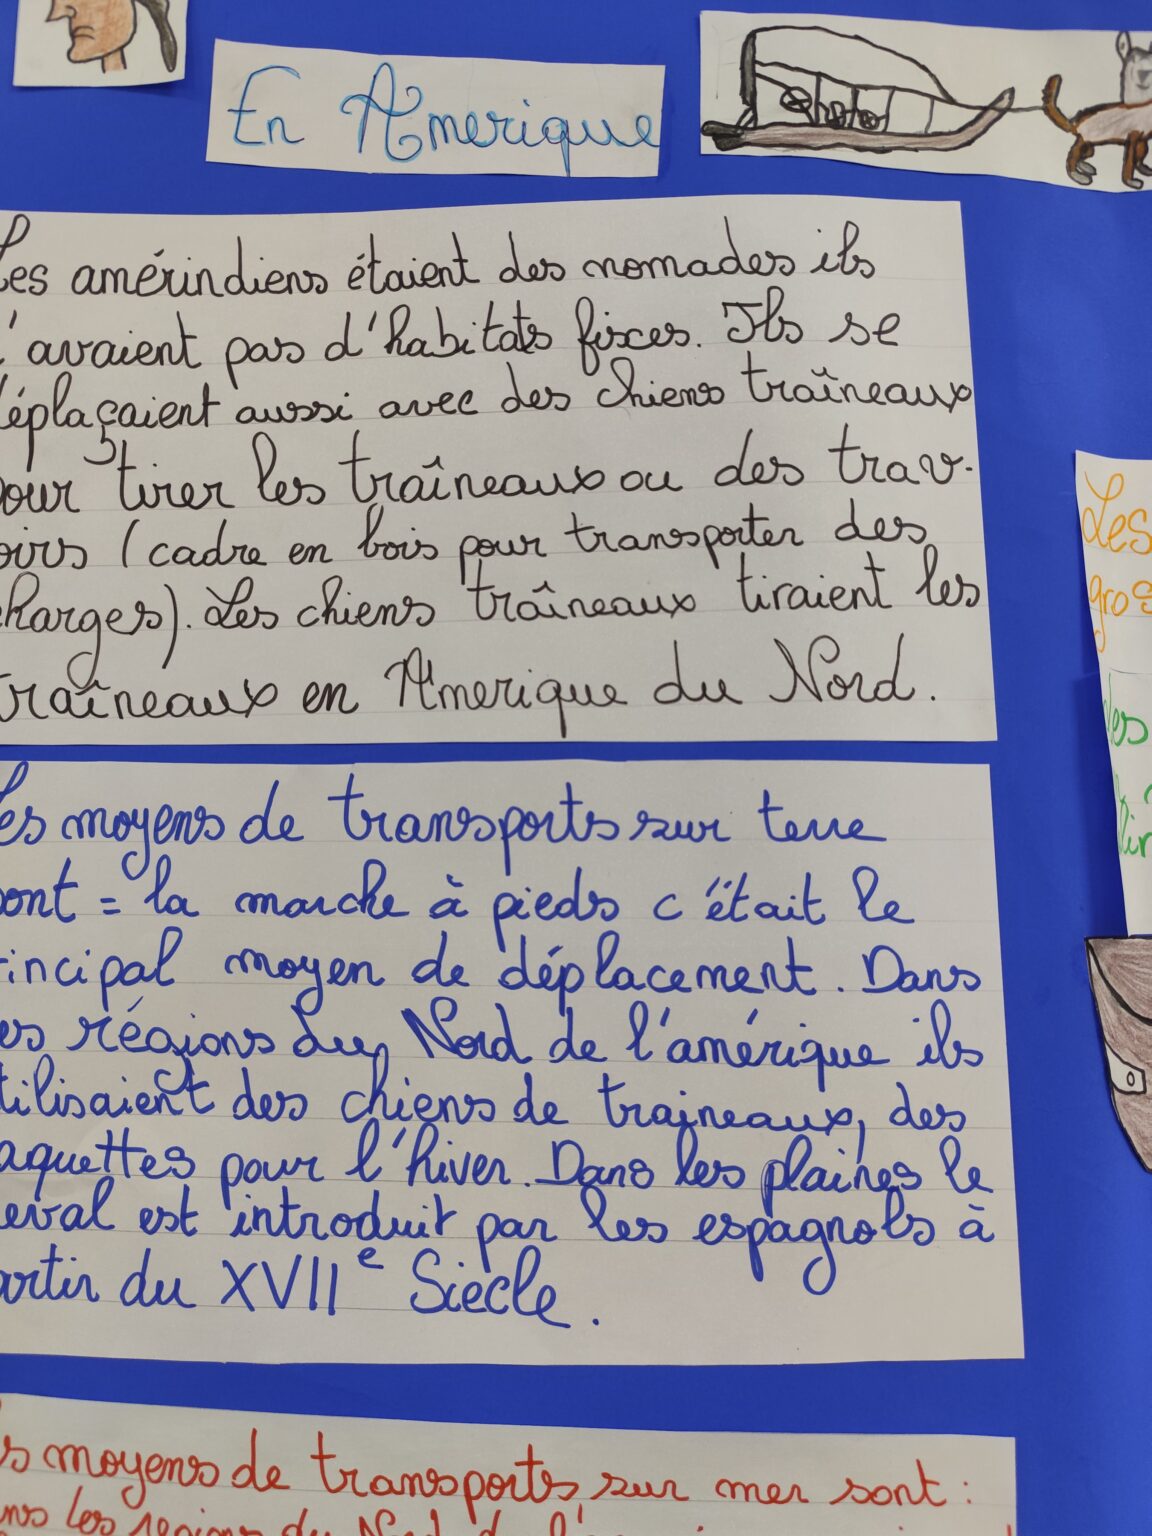 En Amerique
Les amérindiens étaient des nomades ils
n'avaient pas d'habitats fixces. Ils se
déplaçaient aussi avec des chiens traîneaux
pour tirer les traîneaux ou des trav-
oirs (cadre en bois pour transporter des
charges). Les chiens traîneaux tiraient les
traîneaux en Amerique du Nord.
Les moyens de transports sur terre
sont = la marche à pieds c'était le
rincipal moyen de déplacement. Dans
les régions du Nord de l'amérique ils
tilisaient des chiens de traineaux, des
aquettes pour l'hiver. Dans les plaines le
eval est introduit par les espagnols à
artir du XVIIe Siècle.
s moyens de transports sur mer sont :
ns les regions du Nord de l'
Les
gros
des